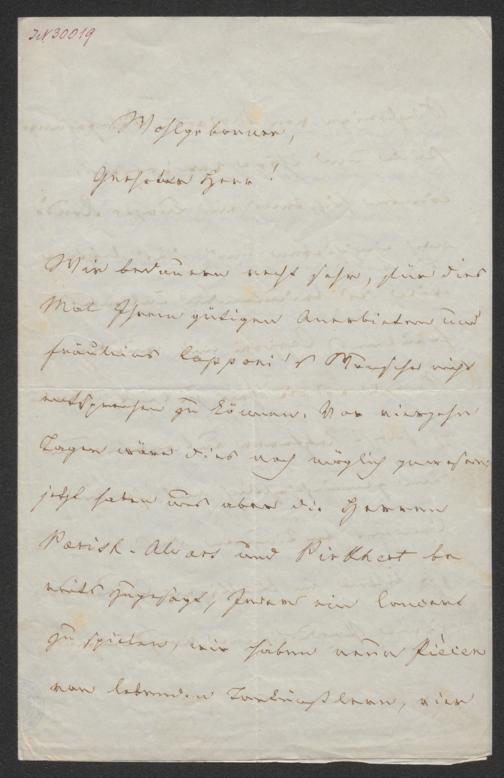 JN 30019
Wohlgeborner,
Geehrter Herr!
Wir bedauern recht sehr, für dies
Mal Ihrem gütigen Anerbieten und
Fräuleins Capponi's Wunsche nicht
entsprechen zu können. Vor vierzehn
Tagen wäre dies noch möglich gewesen;
jetzt haben uns aber die Herren
Parish-Alvars und Pirkhert be
reits zugesagt, jeder ein Concert
zu spielen, wir haben neun Piècen
von lebenden Tonkünstlern, vier